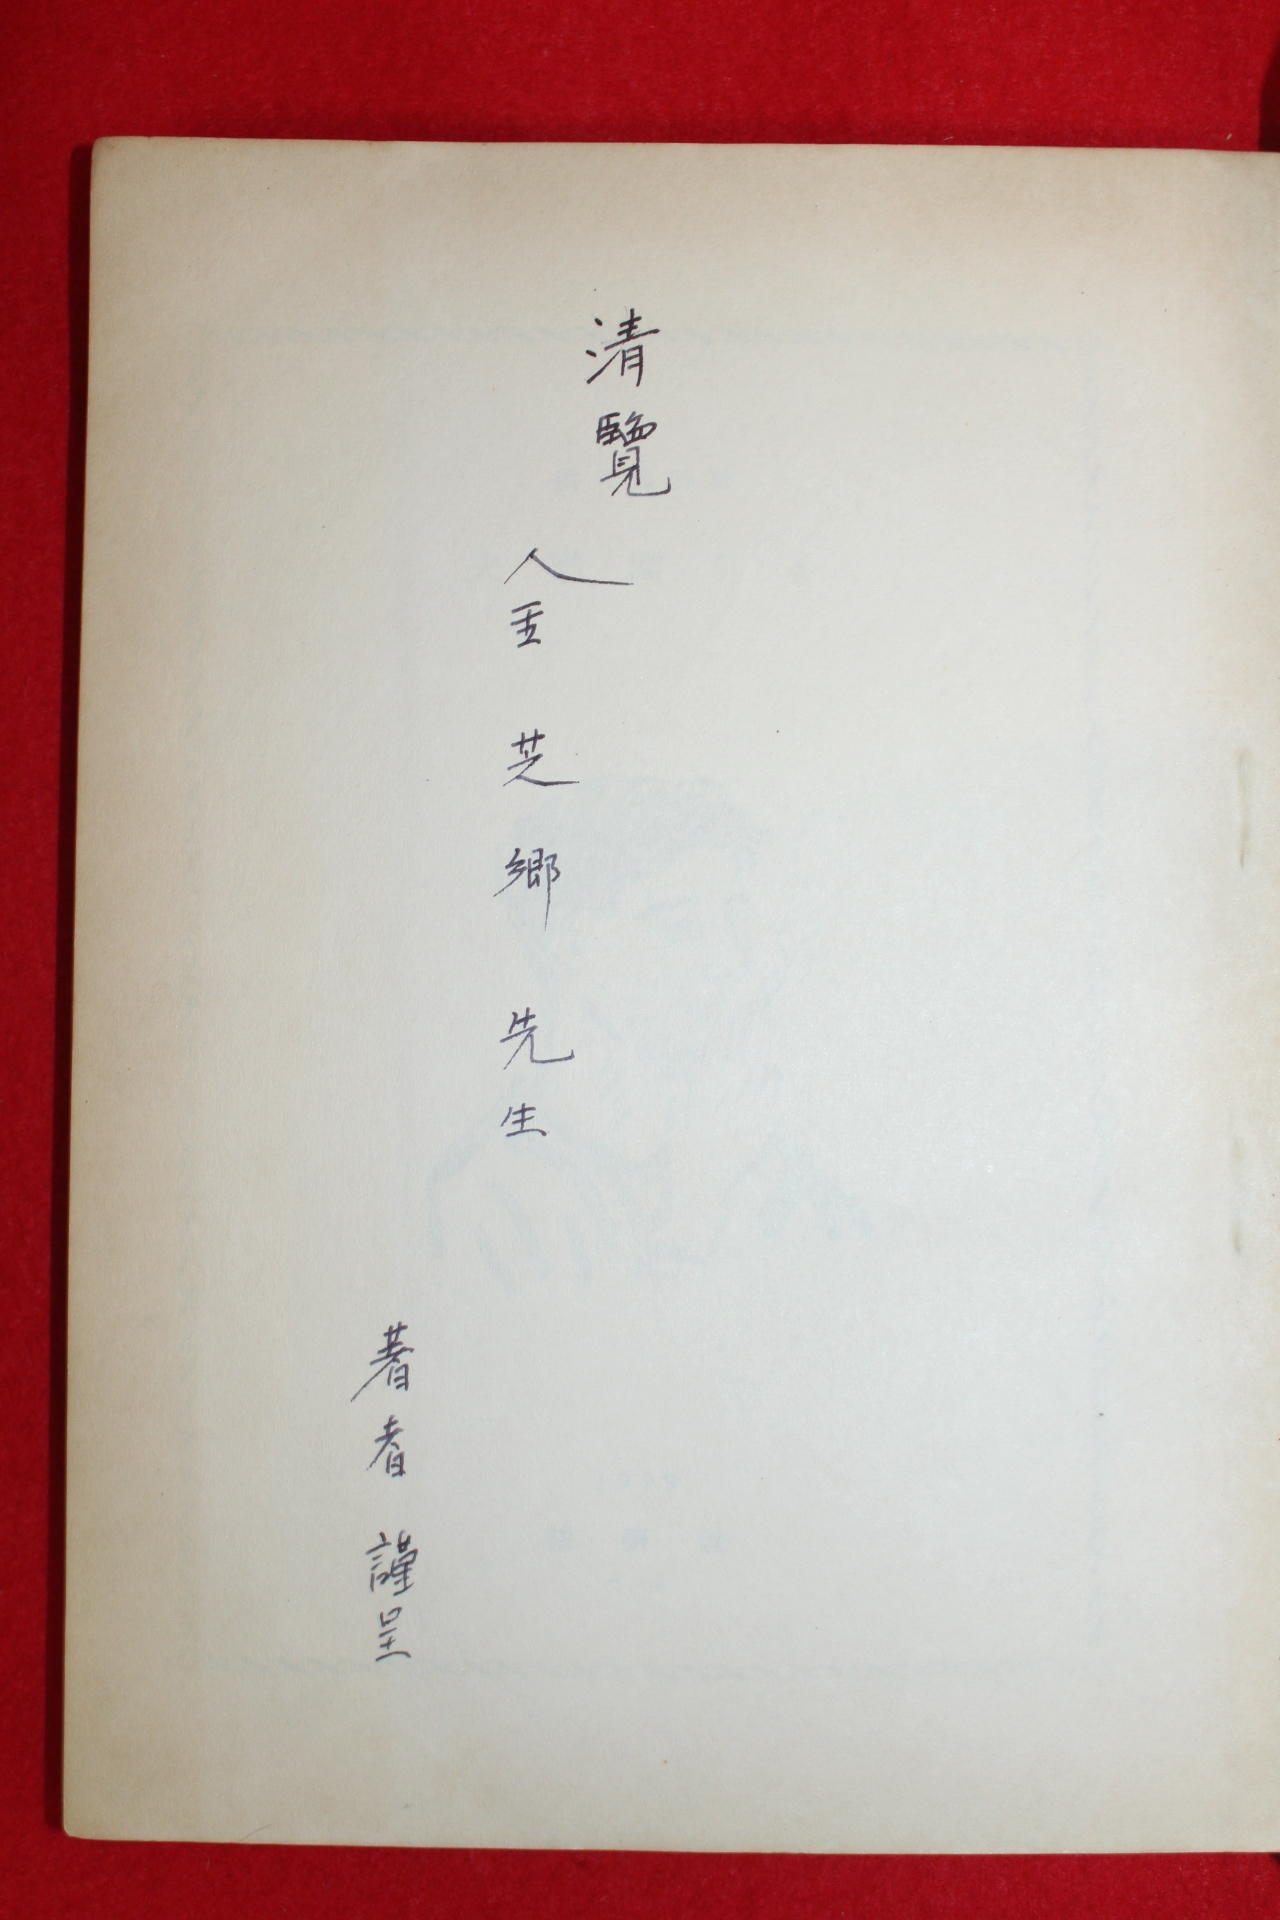 清覽
金芝鄉先生
著者謹呈